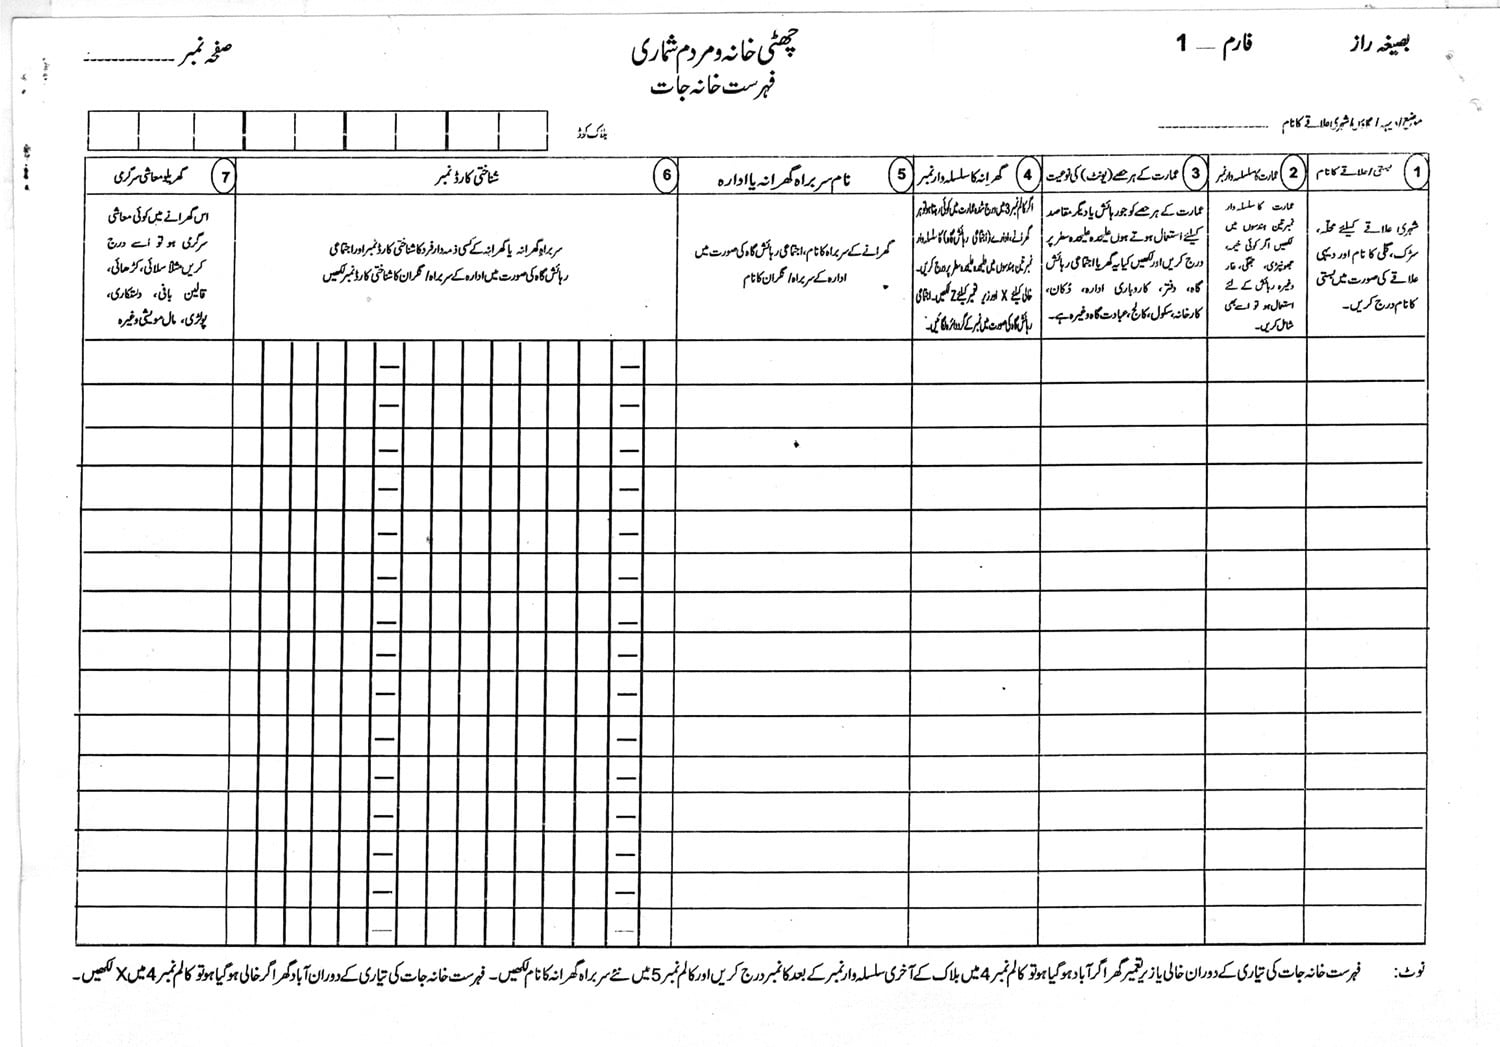 بصیغہ راز
فارم — 1
چھٹی خانہ و مردم شماری
فہرست خانہ جات
صفحہ نمبر ------------
موضع / دیہہ / گاؤں / شہری علاقے کا نام ------------
بلاک کوڈ
1 بستی / علاقے کا نام
شہری علاقے کیلئے محلّہ،
سڑک، گلی کا نام اور دیہی
علاقے کی صورت میں بستی
کا نام درج کریں۔
2 عمارت کا سلسلہ وار نمبر
عمارت کا سلسلہ وار
نمبر تین ہندسوں میں
لکھیں اگر کوئی خیمہ،
جھونپڑی، جھگی، غار
وغیرہ رہائش کے لئے
استعمال ہو تو اسے بھی
شامل کریں۔
3 عمارت کے ہر حصے (یونٹ) کی نوعیت
عمارت کے ہر حصے کو جو رہائش یا دیگر مقاصد
کیلئے استعمال ہوتے ہوں علیحدہ علیحدہ سطر پر
درج کریں اور لکھیں کیا یہ گھر یا اجتماعی رہائش
گاہ، دفتر، کاروباری ادارہ، دُکان،
کارخانہ، سکول، کالج، عبادت گاہ وغیرہ ہے۔
4 گھرانہ کا سلسلہ وار نمبر
اگر کالم نمبر 3 میں درج شدہ عمارت میں کوئی رہتا ہو تو ہر
گھرانے، ادارے (اجتماعی رہائش گاہ) کا سلسلہ وار
نمبر تین ہندسوں میں علیحدہ علیحدہ سطر پر درج کریں۔
خالی کیلئے X اور زیر تعمیر کیلئے Z لکھیں۔ اجتماعی
رہائش گاہ کی صورت میں نمبر کے گرد دائرہ لگائیں۔
5 نام سربراہ گھرانہ یا ادارہ
گھرانے کے سربراہ کا نام، اجتماعی رہائش گاہ کی صورت میں
ادارہ کے سربراہ / نگران کا نام
6 شناختی کارڈ نمبر
سربراہ گھرانہ یا گھرانہ کے کسی ذمہ دار فرد کا شناختی کارڈ نمبر اور اجتماعی
رہائش گاہ کی صورت میں ادارہ کے سربراہ / نگران کا شناختی کارڈ نمبر لکھیں
7 گھریلو معاشی سرگرمی
اس گھرانے میں کوئی معاشی
سرگرمی ہو تو اسے درج
کریں مثلاً سلائی، کڑھائی،
قالین بانی، دستکاری،
پولٹری، مال مویشی وغیرہ
نوٹ: فہرست خانہ جات کی تیاری کے دوران خالی یا زیر تعمیر گھر اگر آباد ہو گیا ہو تو کالم نمبر 4 میں بلاک کے آخری سلسلہ وار نمبر کے بعد کا نمبر درج کریں اور کالم نمبر 5 میں نئے سربراہ گھرانہ کا نام لکھیں۔ فہرست خانہ جات کی تیاری کے دوران آباد گھر اگر خالی ہو گیا ہو تو کالم نمبر 4 میں X لکھیں۔